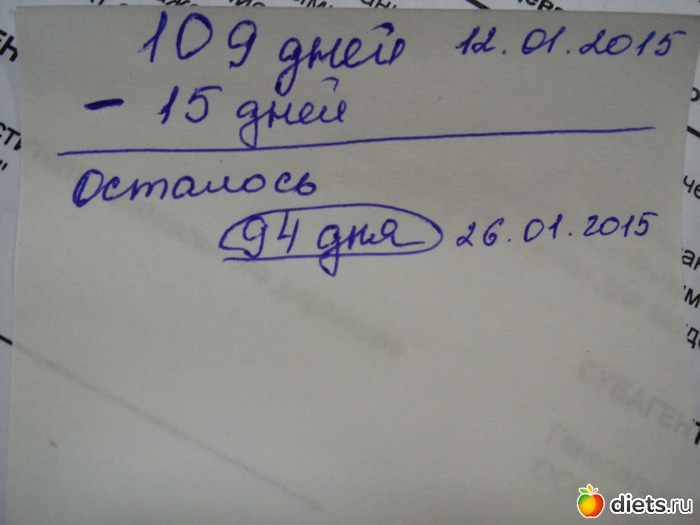 109 дней 12.01.2015
- 15 дней
Осталось
94 дня 26.01.2015
СУБАГЕНТ
diets.ru